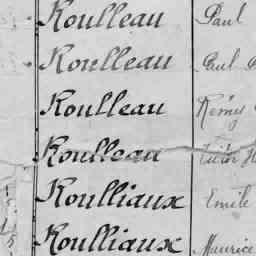 Roulleau Paul
Roulleau Paul
Roulleau Rémy
Roulleau Victor
Roulliaux Emile
Roulliaux Maurice